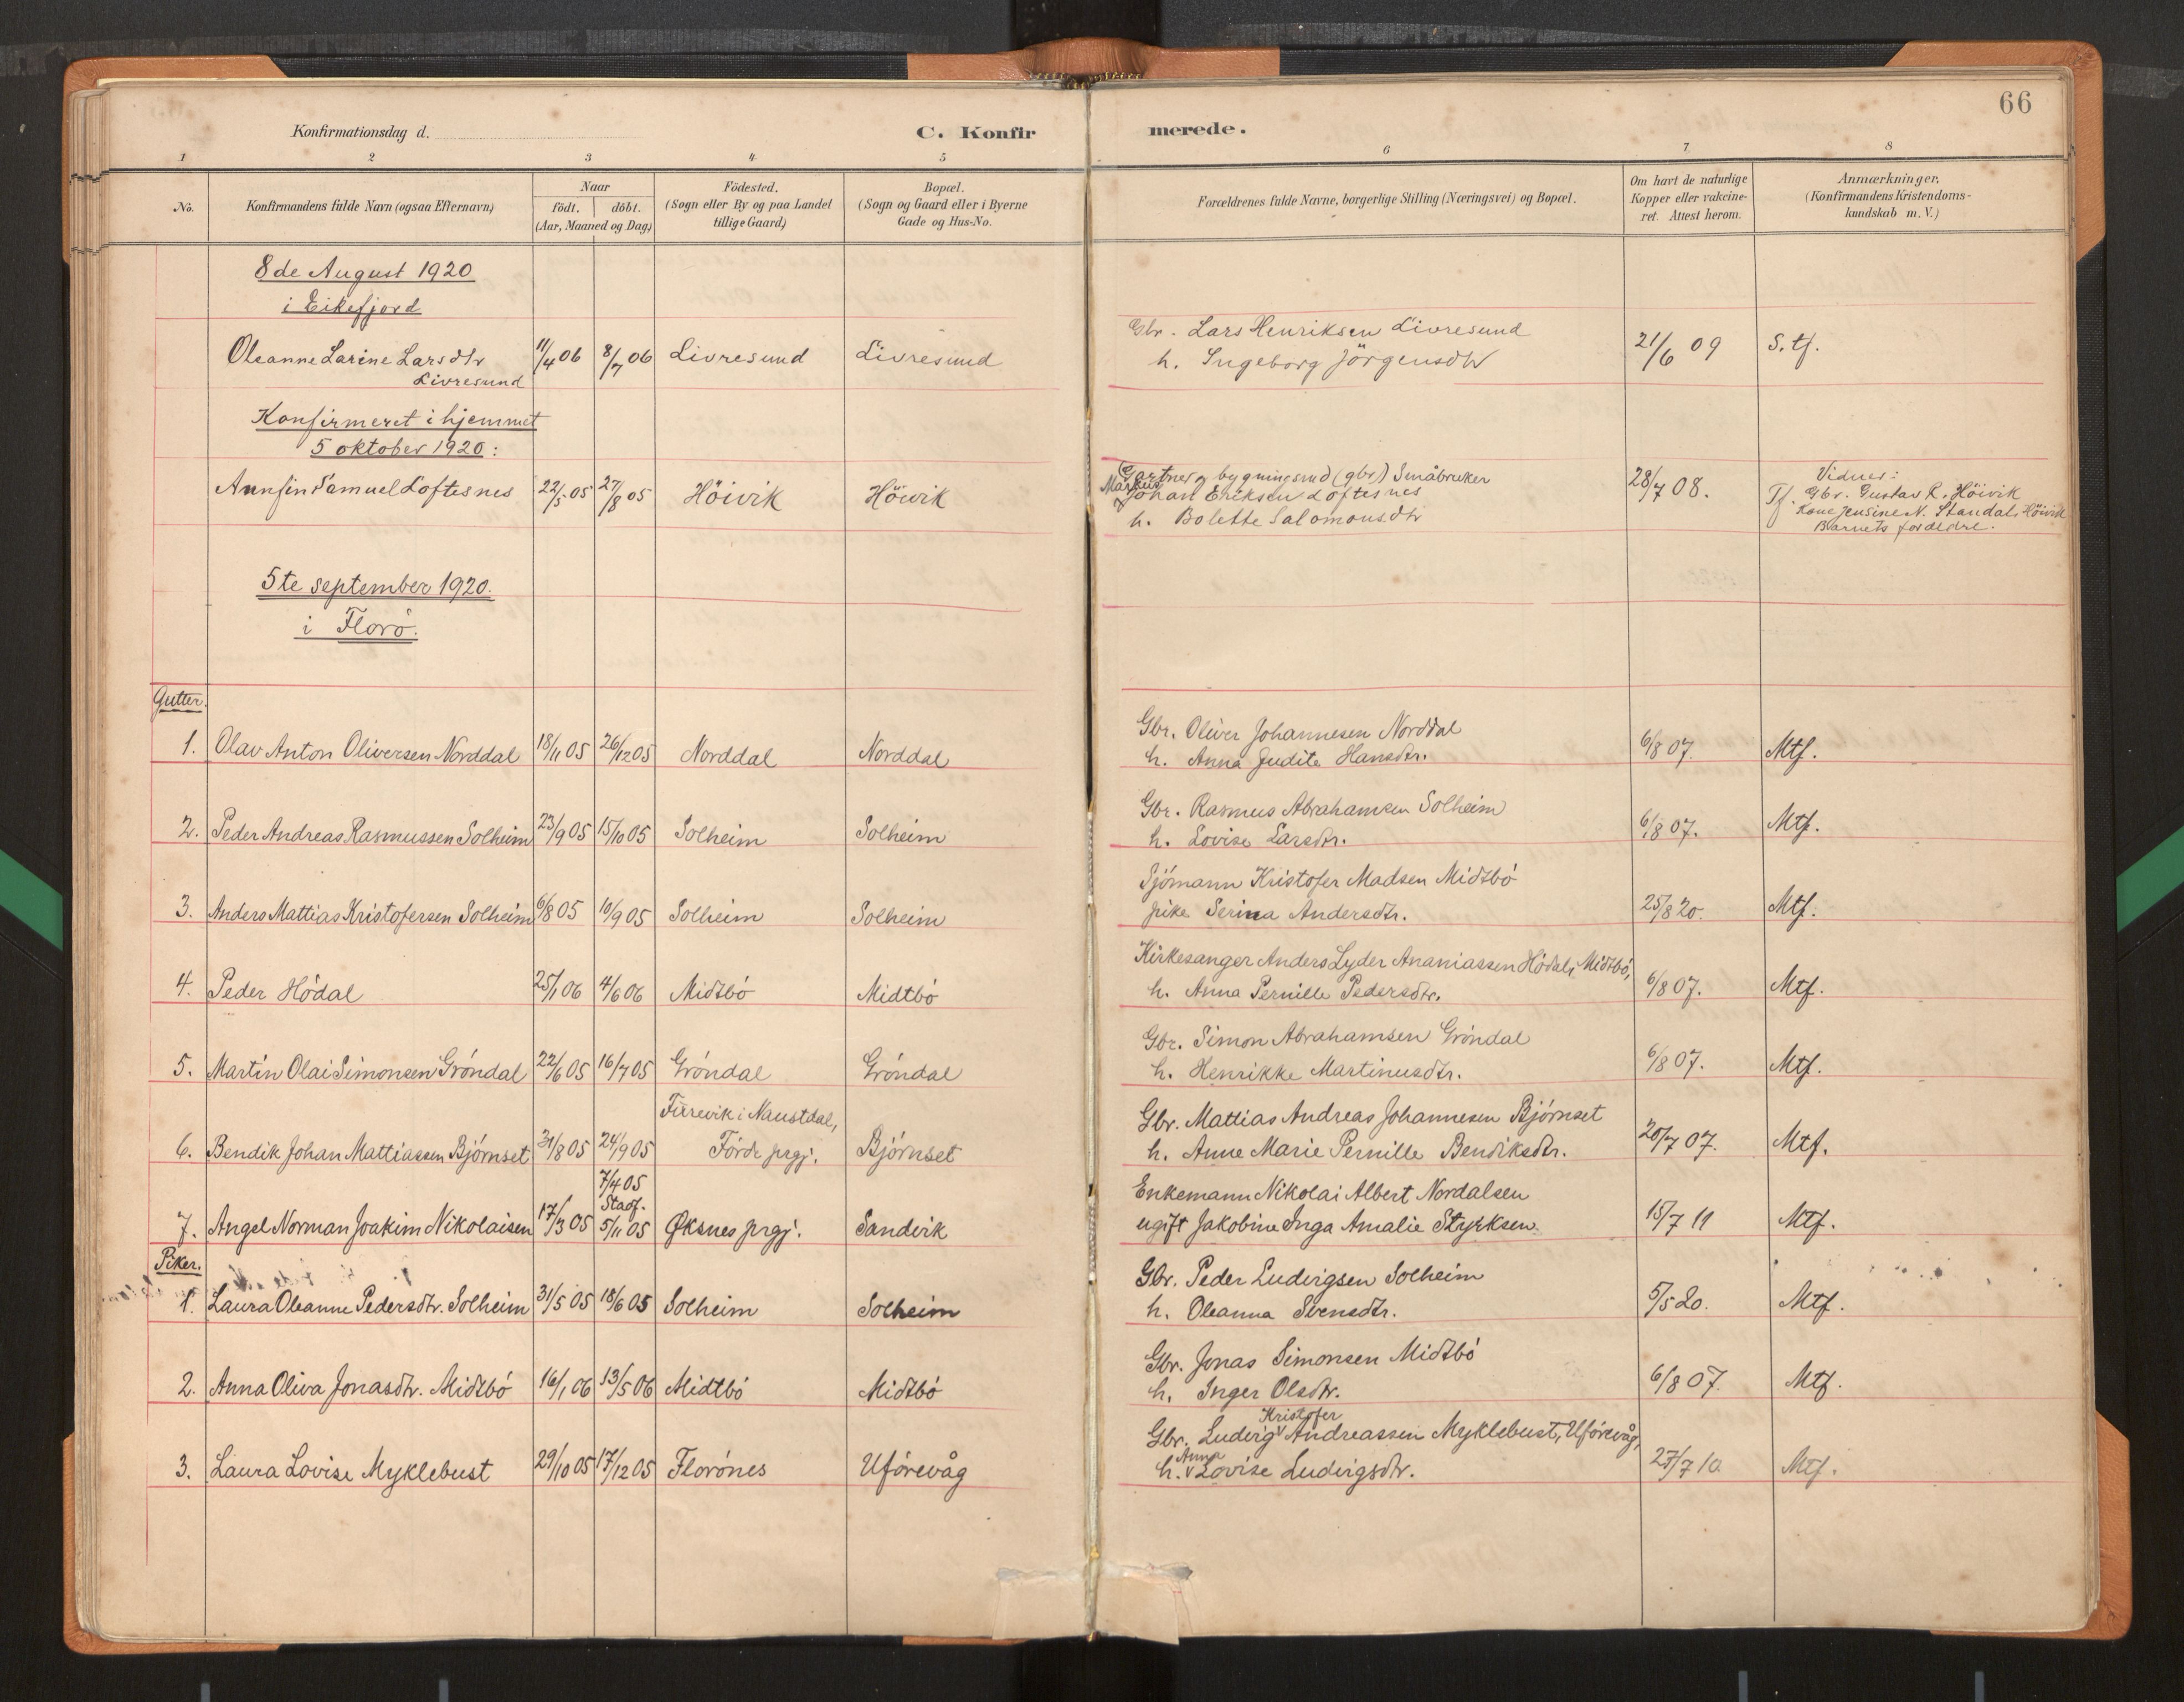 66
Konfirmationsdag d.
C. Konfir
merede.
1 2 3 4 5 6 7 8
No.
Konfirmandens fulde Navn (ogsaa Efternavn)
Naar
födt. döbt.
(Aar, Maaned og Dag)
Födested.
(Sogn eller By og paa Landet
tillige Gaard)
Bopæl.
(Sogn og Gaard eller i Byerne
Gade og Hus-No.
Forældrenes fulde Navne, borgerlige Stilling (Næringsvei) og Bopæl.
Om havt de naturlige
Kopper eller vakcine-
ret. Attest herom.
Anmærkninger.
(Konfirmandens Kristendoms-
kundskab m. V.)
8de August 1920
i Eikefjord
Gbr. Lars Henriksen Livresund
Oleanne Larine Larsdtr 11/4 06 8/7 06 Livresund Livresund h. Ingeborg Jörgensdtr 21/6 09 S. tf.
Livresund
Konfirmeret i hjemmet
5 oktober 1920:
Gartner og bygningsmd (gbr) Småbruker
Vidner:
Annfin Samuel Loftesnes 22/5 05 27/8 05 Höivik Höivik Markus Johan Eriksen Loftesnes 28/7 08. Tf. Gbr. Gustav R. Höivik
Kone Jensine N. Standal, Höivik
h. Bolette Salomonsdtr
Barnets foreldre.
5te september 1920.
i Florö.
Gutter.
Gbr. Oliver Johannesen Norddal
1. Olav Anton Oliversen Norddal 18/11 05 26/12 05 Norddal Norddal h. Anna Judite Hansdtr. 6/8 07. Mtf.
Gbr. Rasmus Abrahamsen Solheim
2. Peder Andreas Rasmussen Solheim 23/9 05 15/10 05 Solheim Solheim h. Lovise Larsdtr. 6/8 07. Mtf.
Sjömann Kristofer Madsen Midtbö
3. Anders Mattias Kristofersen Solheim 6/8 05 10/9 05 Solheim Solheim pike Serina Andersdtr. 25/8 20. Mtf.
Kirkesanger Anders Lyder Ananiassen Hödal, Midtbö,
4. Peder Hödal 25/1 06 4/6 06 Midtbö Midtbö h. Anna Pernille Pedersdtr. 6/8 07. Mtf.
Gbr. Simon Abrahamsen Gröndal
5. Martin Olai Simonsen Gröndal 22/6 05 16/7 05 Gröndal Gröndal h. Henrikke Martinusdtr. 6/8 07. Mtf.
Furevik i Naustdal,
Gbr. Mattias Andreas Johannesen Björnset
6. Bendik Johan Mattiassen Björnset 31/8 05 24/9 05 Förde prgj. Björnset h. Anne Marie Pernille Bendiksdtr. 20/7 07. Mtf.
7/4 05
Stadf.
Enkemann Nikolai Albert Nordalsen
7. Angel Norman Joakim Nikolaisen 17/3 05 5/11 05 Øksnes prgj. Sandvik ugift Jakobine Inga Amalie Styrksen. 15/7 11 Mtf.
Piker.
Gbr. Peder Ludvigsen Solheim
1. Laura Oleanne Pedersdtr. Solheim 31/5 05 18/6 05 Solheim Solheim h. Oleanna Svensdtr. 5/5 20. Mtf.
Gbr. Jonas Simonsen Midtbö
2. Anna Oliva Jonasdtr. Midtbö 16/1 06 13/5 06 Midtbö Midtbö h. Inger Olsdtr. 6/8 07. Mtf.
Kristofer
Gbr. Ludvig v Andreassen Myklebust, Uförevåg,
Anna
3. Laura Lovise Myklebust 29/10 05 17/12 05 Florönes Uförevåg h. v Lovise Ludvigsdtr. 27/7 10 Mtf.